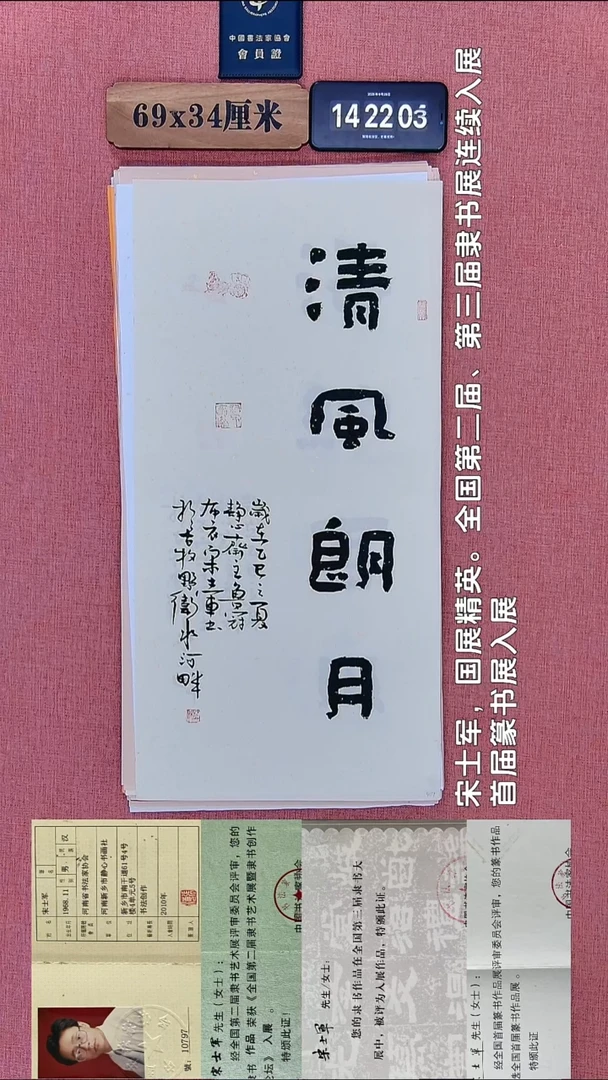 中國書法家協會
會員證
69x34厘米
14 22 03
清風朗月
歲在乙巳之夏
静心齋主魚冠
布衣宋士軍書
於古牧野衛水河畔
宋士军，国展精英。全国第二届、第三届隶书展连续入展
首届篆书展入展
宋士军
男
汉
1968.11
河南省书法家协会
河南新乡市静心书画社
新乡市南干道61号4号
楼4单元5号
书法创作
2010年
號：10797
宋士军 先生（女士）：
经全国第二届隶书艺术展评审委员会评审，您的
隶书 作品 荣获《全国第二届隶书艺术展暨隶书创作
论坛》入展 。
特颁此证！
宋士军 先生/女士：
您的隶书作品在全国第三届隶书大
展中，被评为入展作品，特颁此证。
士军 先生（女士）：
经全国首届篆书作品展评审委员会评审，您的篆书作品
全国首届篆书作品展 。
特颁此证